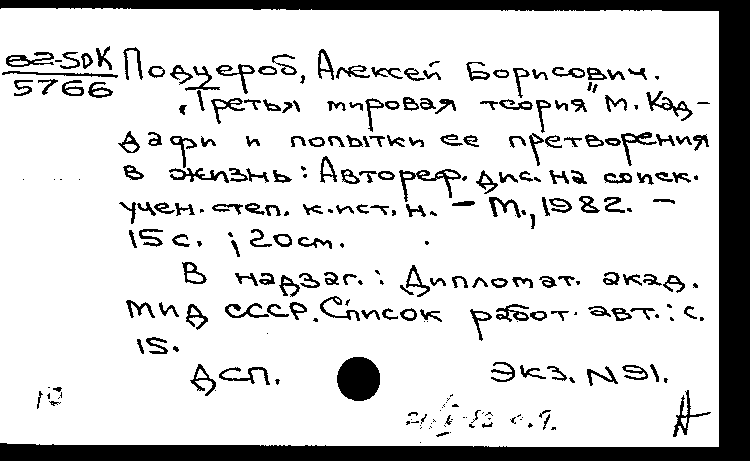 в2-5DK
5766
Подцероб, Алексей Борисович.
"Третья мировая теория" М. Кад-
дафи и попытки ее претворения
в жизнь: Автореф. дис. на соиск.
учен. степ. к. ист. н. - М., 1982. -
15 с. ; 20 см.
В надзаг.: Дипломат. акад.
МИД СССР. Список работ. авт.: с.
15.
ДСП. Экз. N 91.
10
А